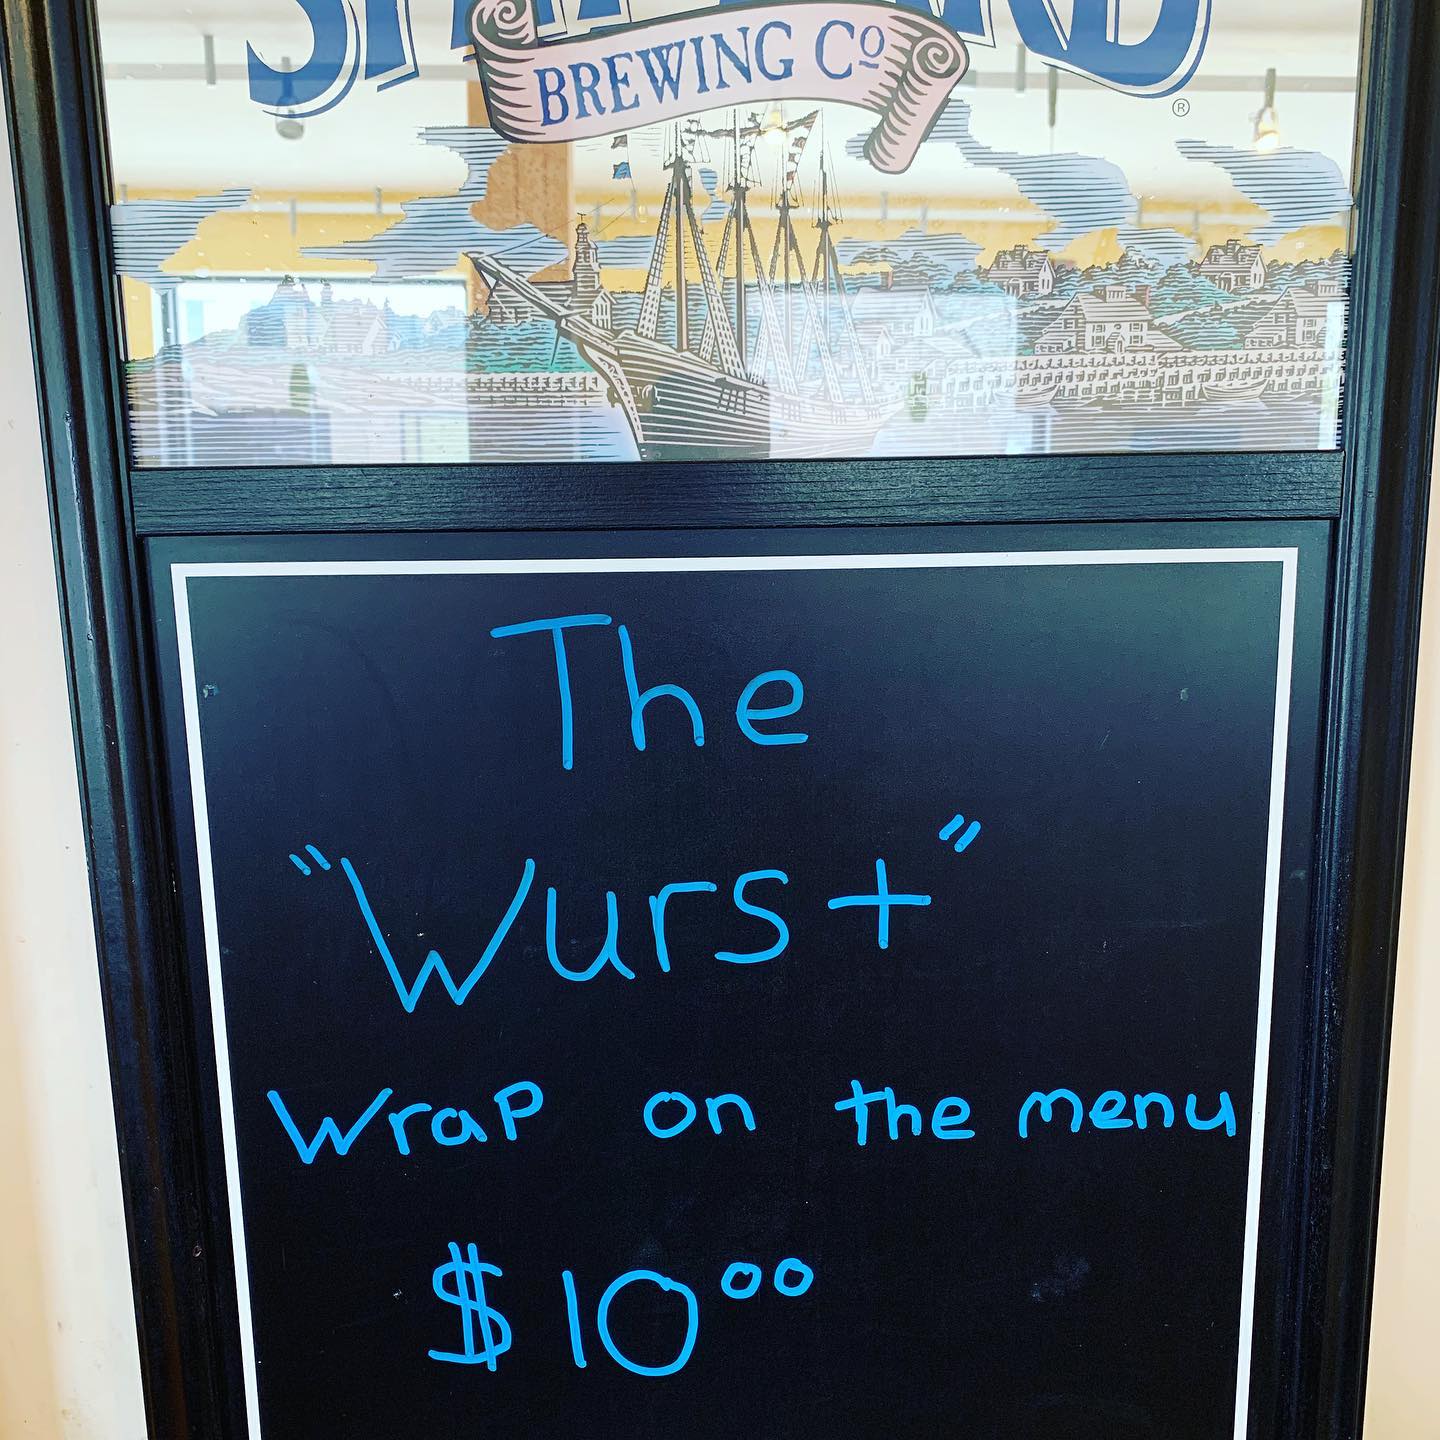 BREWING Cº
®
The
"Wurst"
Wrap on the menu
$10⁰⁰